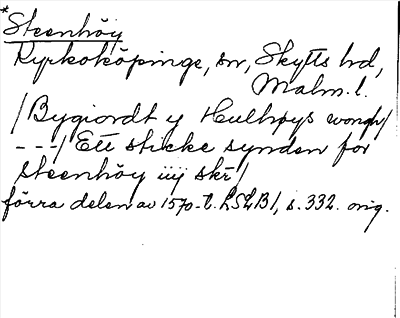 *Steenhöy
Kyrkoköpinge, sn, Skytts hd,
Malm. l.
/Bygiordt y Hulhøys wongh/
---/ Ett sticke synden for
steenhöy iiij skr/
förra delen av 1570-t. LSLB1, s. 332. orig.